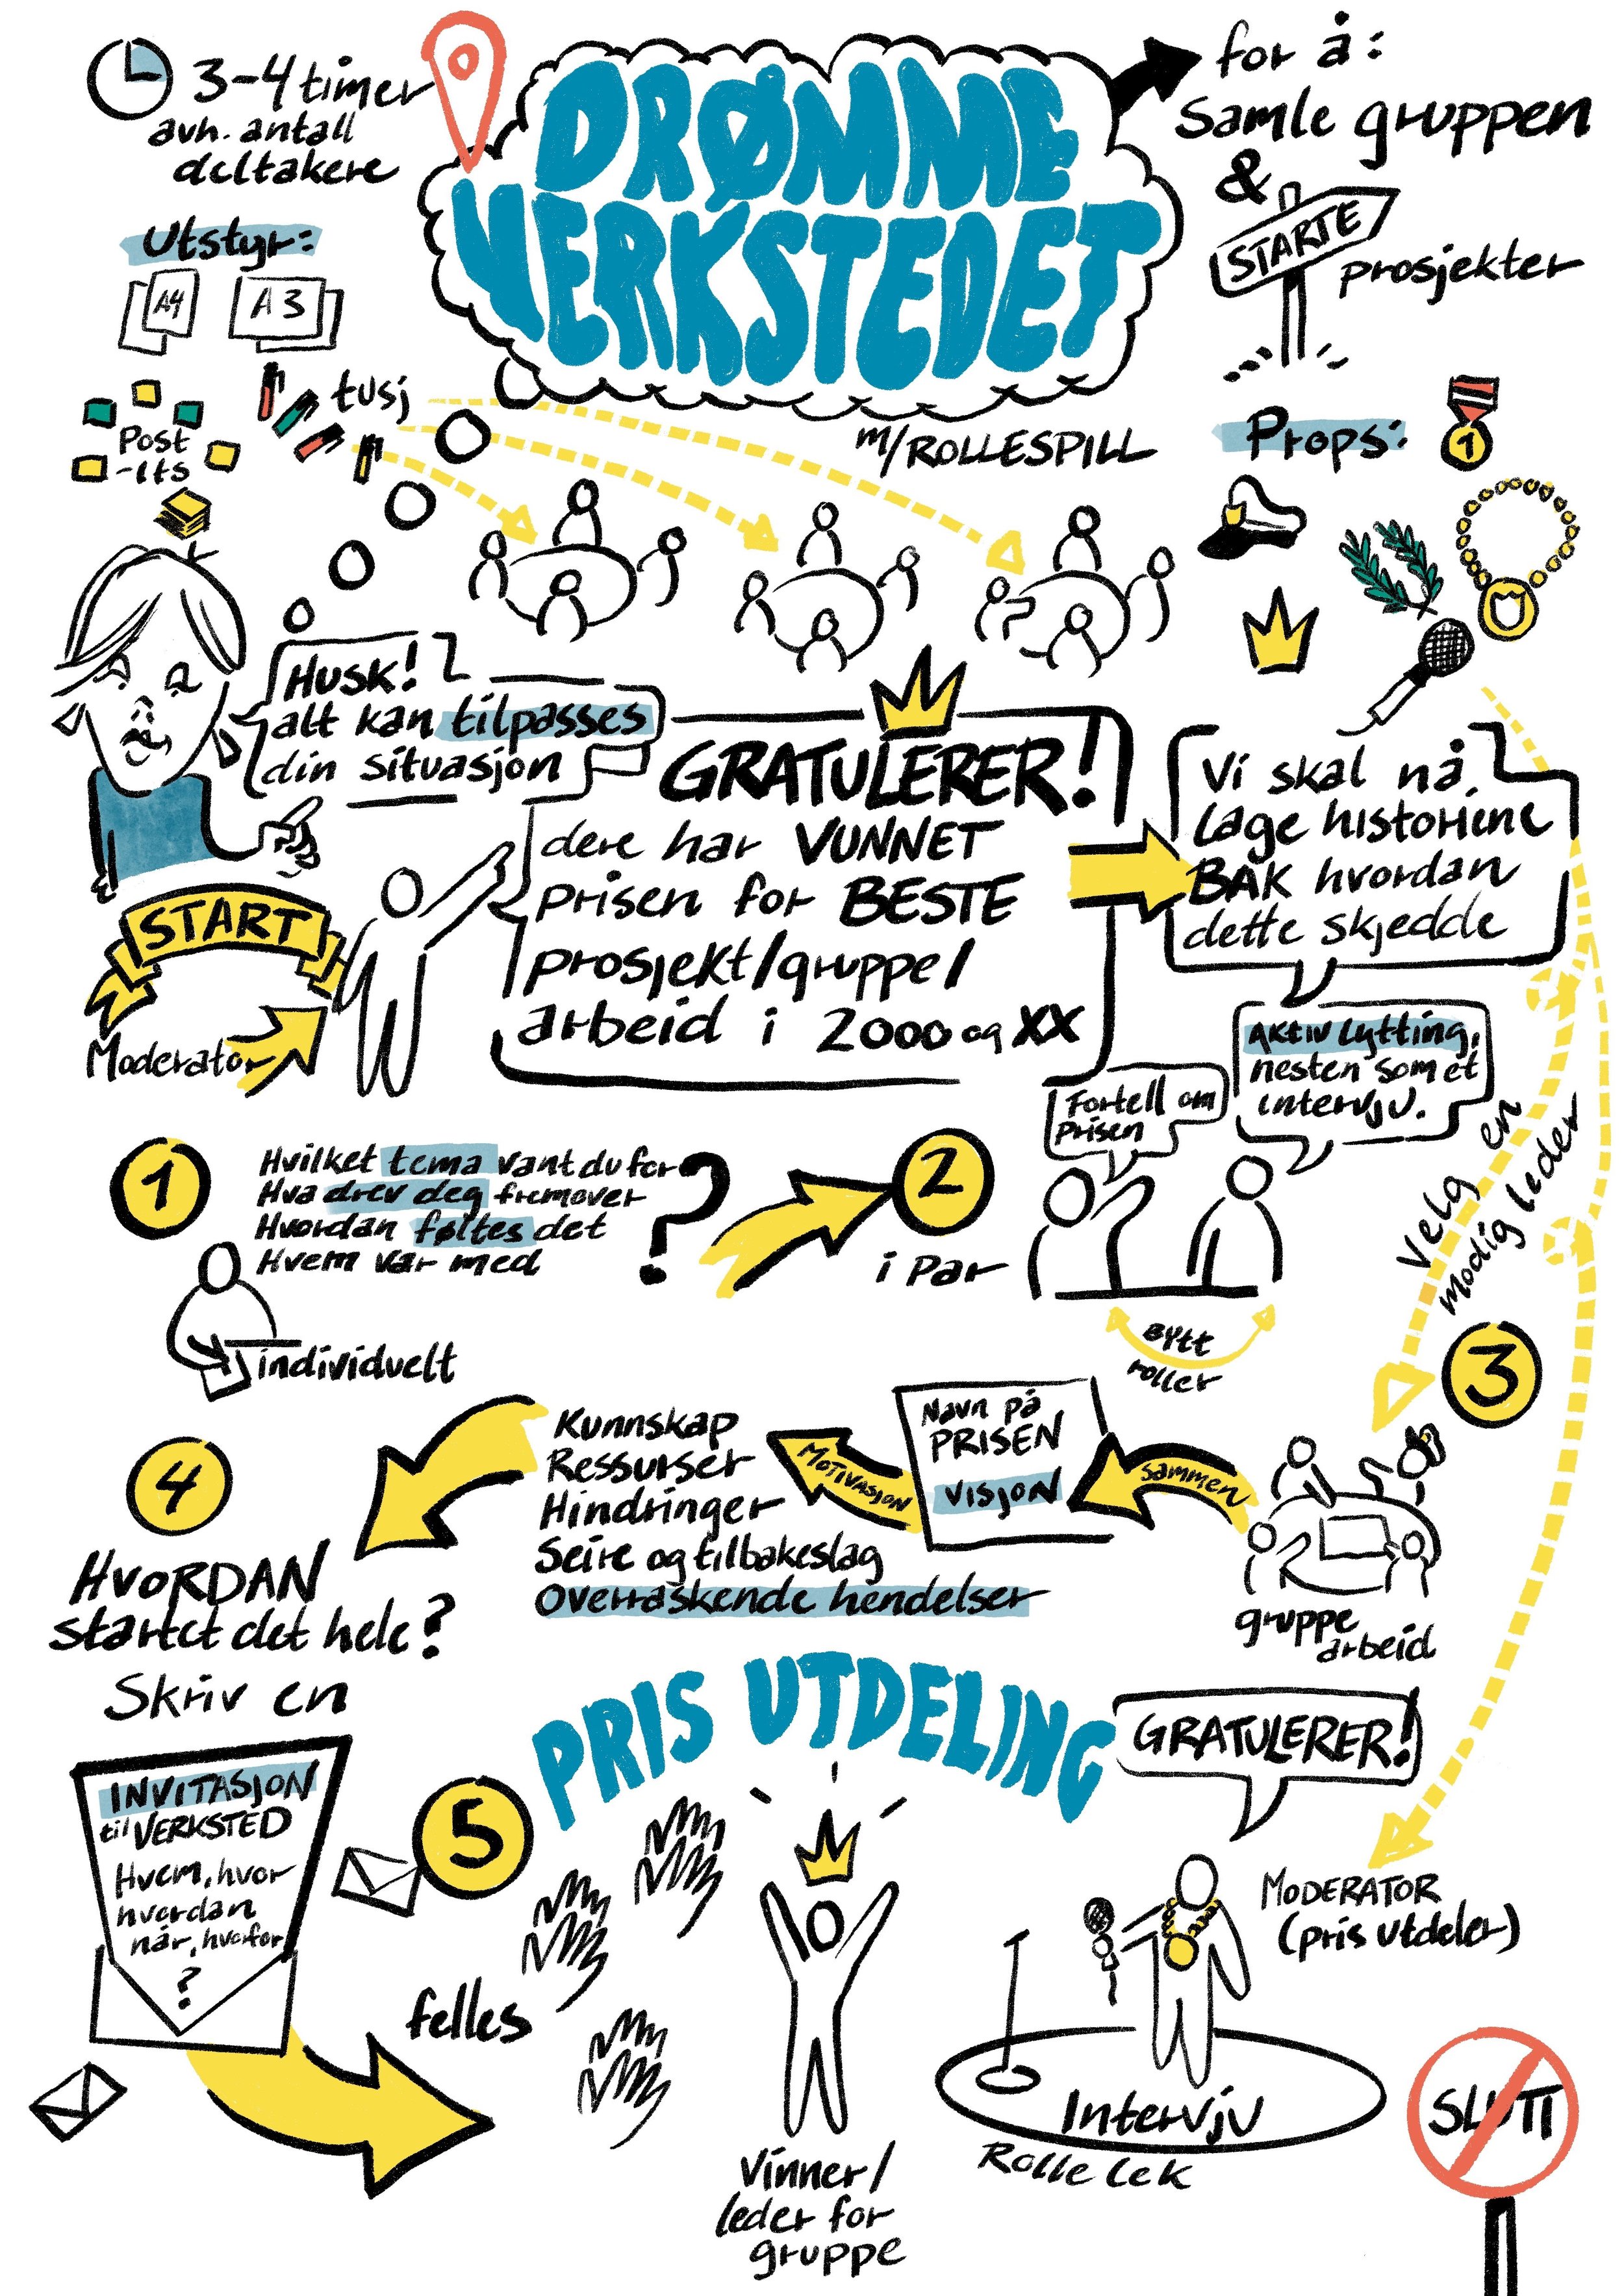 3-4 timer
avh. antall
deltakere
DRØMME
VERKSTEDET
m/ROLLESPILL
for å:
Samle gruppen
&
STARTE
prosjekter
Utstyr:
A4
A3
tusj
Post
-its
Props:
1
HUSK!
alt kan tilpasses
din situasjon
START
Moderator
GRATULERER!
dere har VUNNET
prisen for BESTE
prosjekt/gruppe/
arbeid i 2000 og XX
Vi skal nå
lage historiene
BAK hvordan
dette skjedde
Aktiv lytting,
nesten som et
intervju.
Fortell om
prisen
1
Hvilket tema vant du for
Hva drev deg fremover
Hvordan føltes det
Hvem var med
?
individuelt
2
i par
Bytt
roller
Velg en
modig leder
3
gruppe
arbeid
sammen
Navn på
PRISEN
VISJON
MOTIVASJON
Kunnskap
Ressurser
Hindringer
Seire og tilbakeslag
Overraskende hendelser
4
HVORDAN
startet det hele?
Skriv en
INVITASJON
til VERKSTED
Hvem, hvor
hvordan
når, hvorfor
?
5
PRIS UTDELING
felles
Vinner/
leder for
gruppe
GRATULERER!
MODERATOR
(pris utdeler)
Intervju
Rolle lek
SLUTT